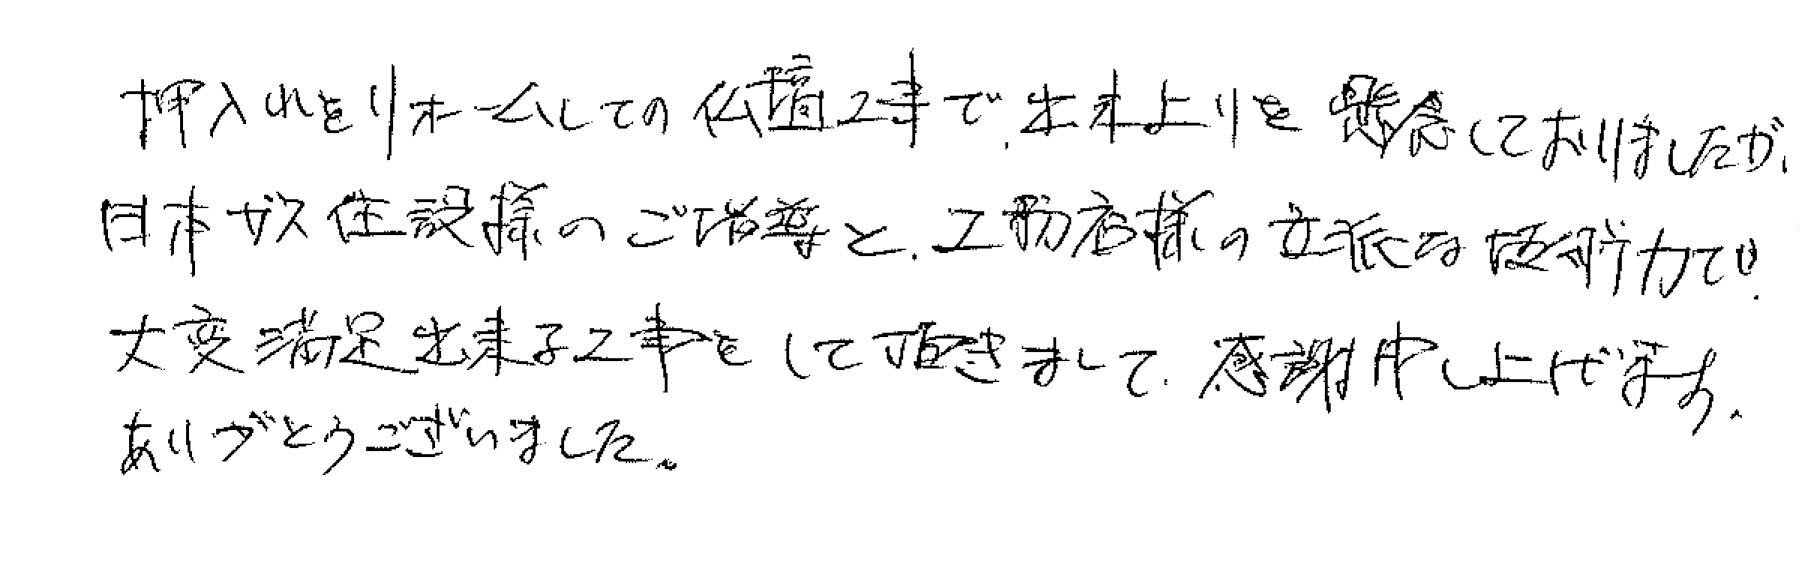 押入れをリホームしての仏壇工事で、出来上りを懸念しておりましたが、
日本ガス住設様のご指導と、工務店様の立派な技術力で、
大変満足出来る工事をして頂きまして、感謝申し上げます。
ありがとうございました。